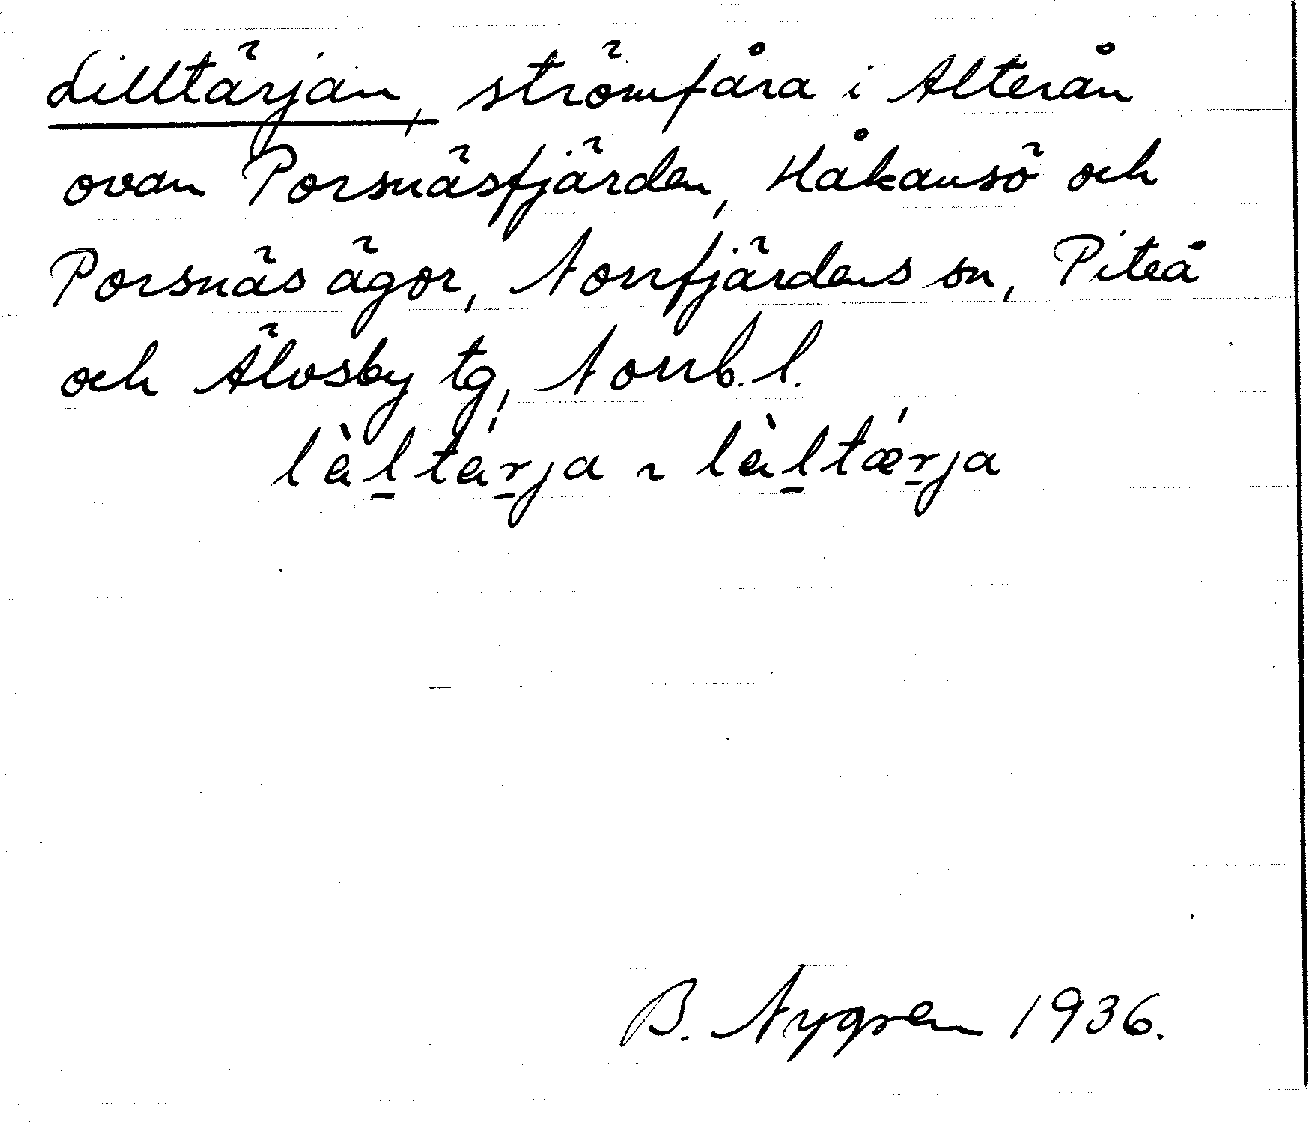 Lilltärjan, strömfåra i Alterån
ovan Porsnäsfjärden, Håkansö och
Porsnäs ägor, Norrfjärdens sn, Piteå
och Älvsby tg, Norrb. l.
làl̠tár̠ja ~ làl̠tǽr̠ja
B. Nygren 1936.